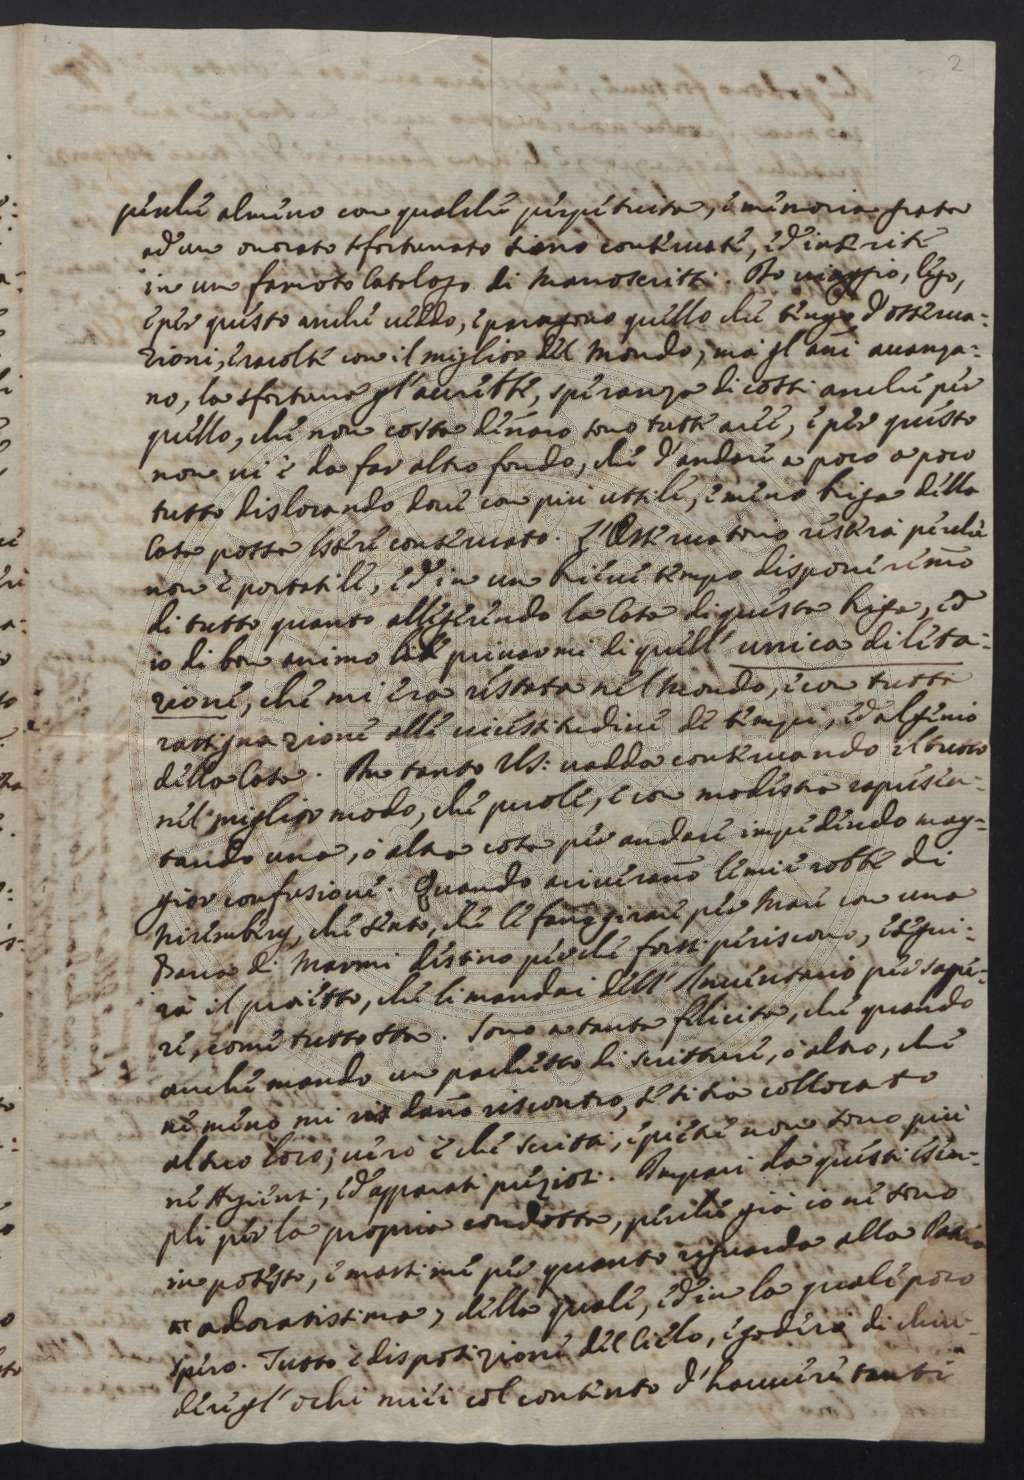 2
perche almeno con qualche perpetuita, e memoria grata
ad un onorato sfortunato siano conservate, ed inserite
in un famoso Catalogo di Manoscritti. Io viaggio, lego,
e per questo anche vedo, e paragono quello che tengo d'osserva=
zioni, e racolte con il miglior del Mondo; ma gl'anni avanza=
no, la sfortuna gl'accrebbe, speranza di costì anche per
quello, che non costa dennaro sono tutte aree, e per questo
non vi è da far altro fondo, che d'andare a poco a poco
tutto dislocando dove con più utile, e meno briga della
Casa possa essere conservato. L'Osservatorio resterà perche
non è portatile, ed in un brieve tempo disponeremo
di tutto quanto allegerendo la Casa di questa briga, ed
io di bon animo privarmi di quell' unica diletta=
zione, che mi era restata nel Mondo, e con tutta
rassignazione alle vicessitudini de tempi, ed al genio
della Casa. In tanto VS: vadda conservando il tutto
nel miglior modo, che puole, e con modestia rapresen=
tando una, o altra cosa per andare impedendo mag=
gior confusione. Quando ariveranno le mie robbe di
Nirembergh, che sento, che le fanno girare per Mare con una
Barca di Marmi destino perche forsi periscono, eseguì=
rà il proietto, che li mandai dell' Inventario per sape=
re, come tutto sta. Sono a tanta felicita, che quando
anche mando un pachetto di scritture, o altro, che
ne meno mi danno riscontro, se sii sia collocato
altro loco; vero è che scritti, e pietre non sono più
ne Argenti, ed apparati preziosi. Impari da questi esem=
pli per la propria condotta, perche già io ne sono
in possesso, e massime per quanto riguarda alla Patria
adoratissima, della quale, ed in la quale poco
spero. Tutto è disposizione del Cielo, e goderà di chiu=
dere gl'ochi miei col contento d'havere tanti